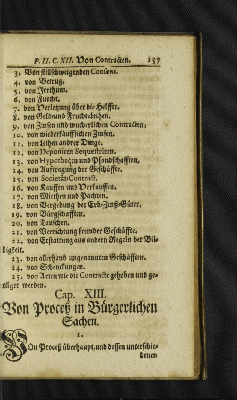 P. II. C. XII. Von Contracten. 159
3. Von stilschweigenden Consens.
4. von Betrug.
5. von Irrthum.
6. von Furcht.
7. von Verletzung über die Helffte.
8. von Geld und Fruchtleihen.
9. von Zinsen und wucherlichen Contracten,
10. von wiederkäufflichen Zinsen,
11. von leihen andrer Dinge.
12. von Deponiren Sequestriren.
13. von Hypothequ und Pfandschafften,
14. von Auftragung der Geschäffte.
15. von Societät-Contract.
16. von Kauffen und Verkauffen.
17. von Miethen und Pachten.
18. von Vergebung der Erb-Zinß-Güter,
19. von Bürgschafften.
20. von Tauschen.
21. von Verrichtung fremder Geschäffte.
22. von Erstattung aus andern Regeln der Bil-
ligkeit.
23. von allerhand ungenannten Geschäfften.
24. von Schenckungen.
25. von Arten wie die Contracte gehoben und ge-
tilget werden.
Cap. XIII.
Von Proceß in Bürgerlichen
Sachen.
1.
Von Proceß überhaupt, und dessen unterschie-
denen